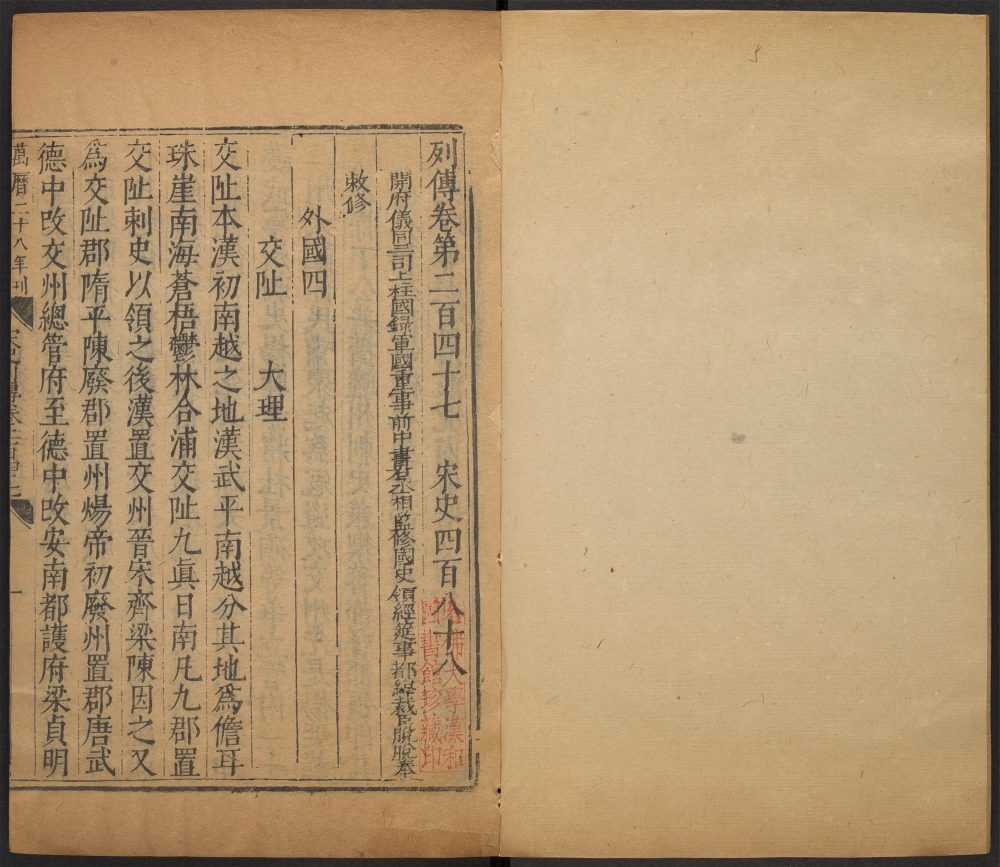 列傳卷第二百四十七 宋史四百八十八
開府儀同三司上柱國錄軍國重事前中書右丞相監修國史領經筵事都總裁臣脫脫奉
敕修
外國四
交阯 大理
交阯本漢初南越之地漢武平南越分其地爲儋耳
珠崖南海蒼梧鬱林合浦交阯九眞日南凡九郡置
交阯刺史以領之後漢置交州晉宋齊梁陳因之又
爲交阯郡隋平陳廢郡置州煬帝初廢州置郡唐武
德中改交州總管府至德中改安南都護府梁貞明
萬曆二十八年刊
宋史列傳卷二百四十七
一
哈佛大學漢和
圖書館珍藏印